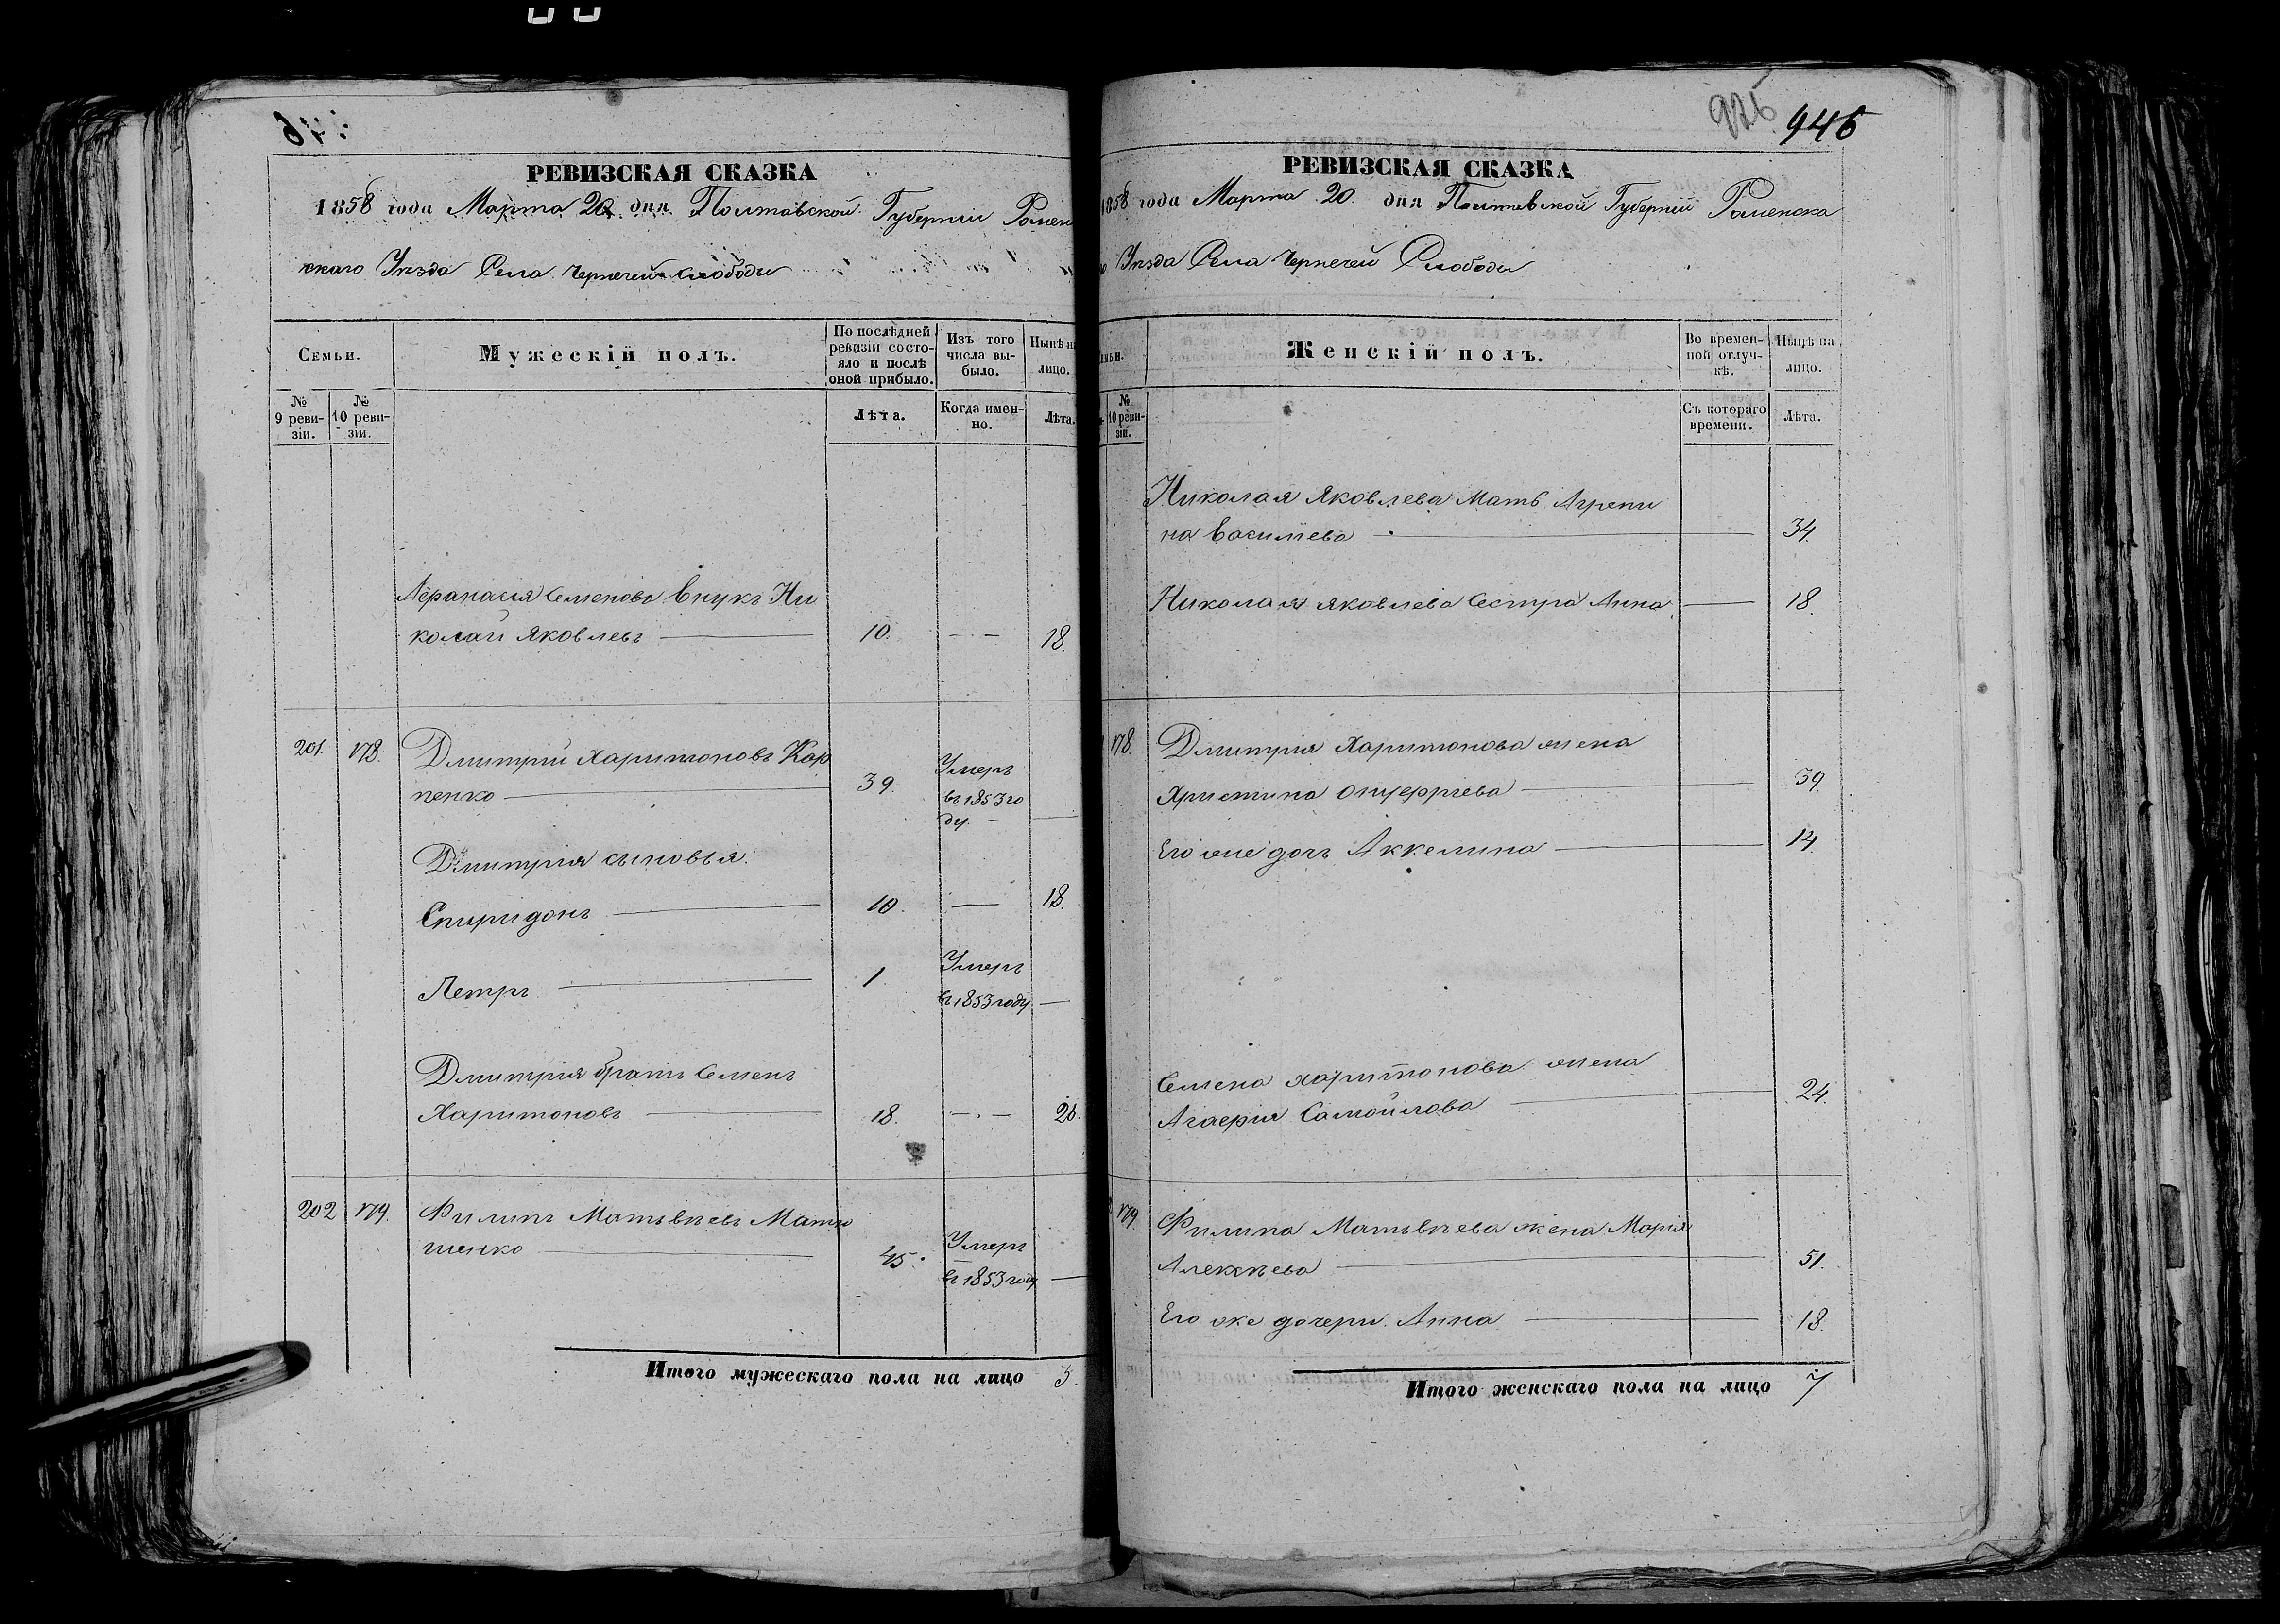 РЕВИЗСКАЯ СКАЗКА
1858 года Марта 20 дня Полтавской Губернии Ромен
скаго Уѣзда Села Чернечей слободы
Семьи.
Мужескій полъ.
По послѣдней ревизіи состояло и послѣ оной прибыло.
Изъ того числа выбыло.
Нынѣ на лицо.
№ 9 ревизіи.
№ 10 ревизіи.
Лѣта.
Когда именно.
Лѣта.
Афанасія Семенова внукъ Ни
колай Яковлевъ 10. 18.
201. 178. Дмитрій Харитоновъ Кор
пенко 39. Умеръ
въ 1853 го
ду.
Дмитрія сыновья.
Спиридонъ 10. 18.
Петръ 1 Умеръ
въ 1853 году
Дмитрія братъ Семенъ
Харитоновъ 18. 26.
202 179. Филипъ Матвѣевъ Матю
шенко 45. Умеръ
въ 1853 году
Итого мужескаго пола на лицо 3.
946
РЕВИЗСКАЯ СКАЗКА
1858 года Марта 20. дня Полтавской Губерніи Роменска
Уѣзда Села Чернечей Слободы
Женскій полъ.
Во временной отлучкѣ.
Нынѣ на лицо.
№ 10 ревизіи.
Съ котораго времени.
Лѣта.
Николая Яковлева Мать Агрепи
на Васильева 34.
Николая Яковлева Сестра Анна 18.
178. Дмитрія Харитонова жена
Христина Онуфріева 39.
Его же дочь Аккелина 14.
Семена Харитонова жена
Агафія Самойлова 24.
179. Филипа Матвѣева жена Марія
Алексѣева 51.
Его же дочери. Анна 18.
Итого женскаго пола на лицо 7